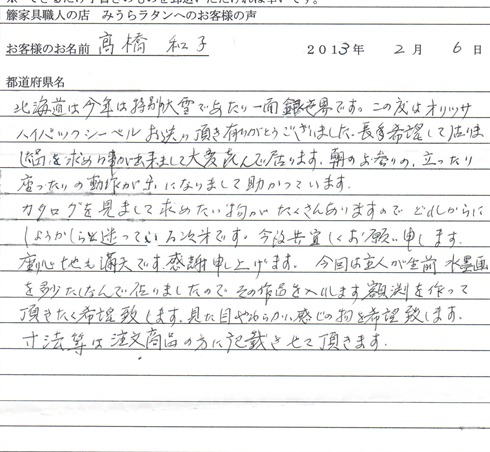 籐家具職人の店 みうらラタンへのお客様の声
お客様のお名前 高橋 和子 2013年 2月 6日
都道府県名
北海道は今年は特別大雪であたり一面銀世界です。この度はオリッサ
ハイバックシーベル お送り頂き有りがとうございました、長年希望して居りま
した品を求める事が出来まして大変喜んで居ります。朝のお参りの、立ったり
座ったりの動作が楽になりまして助かっています。
カタログを見まして求めたい物がたくさんありますので どれからに
しようかしらと迷っている次第です。今後共宜しくお願い申します。
座り心地も満点です。感謝申し上げます。今回は主人が生前 水墨画
を多少たしなんで在りましたので その作品を入れます 額渕を作って
頂きたく希望致します。見た目やわらかい感じの物を希望致します。
寸法等は注文商品の方に記載させて頂きます。